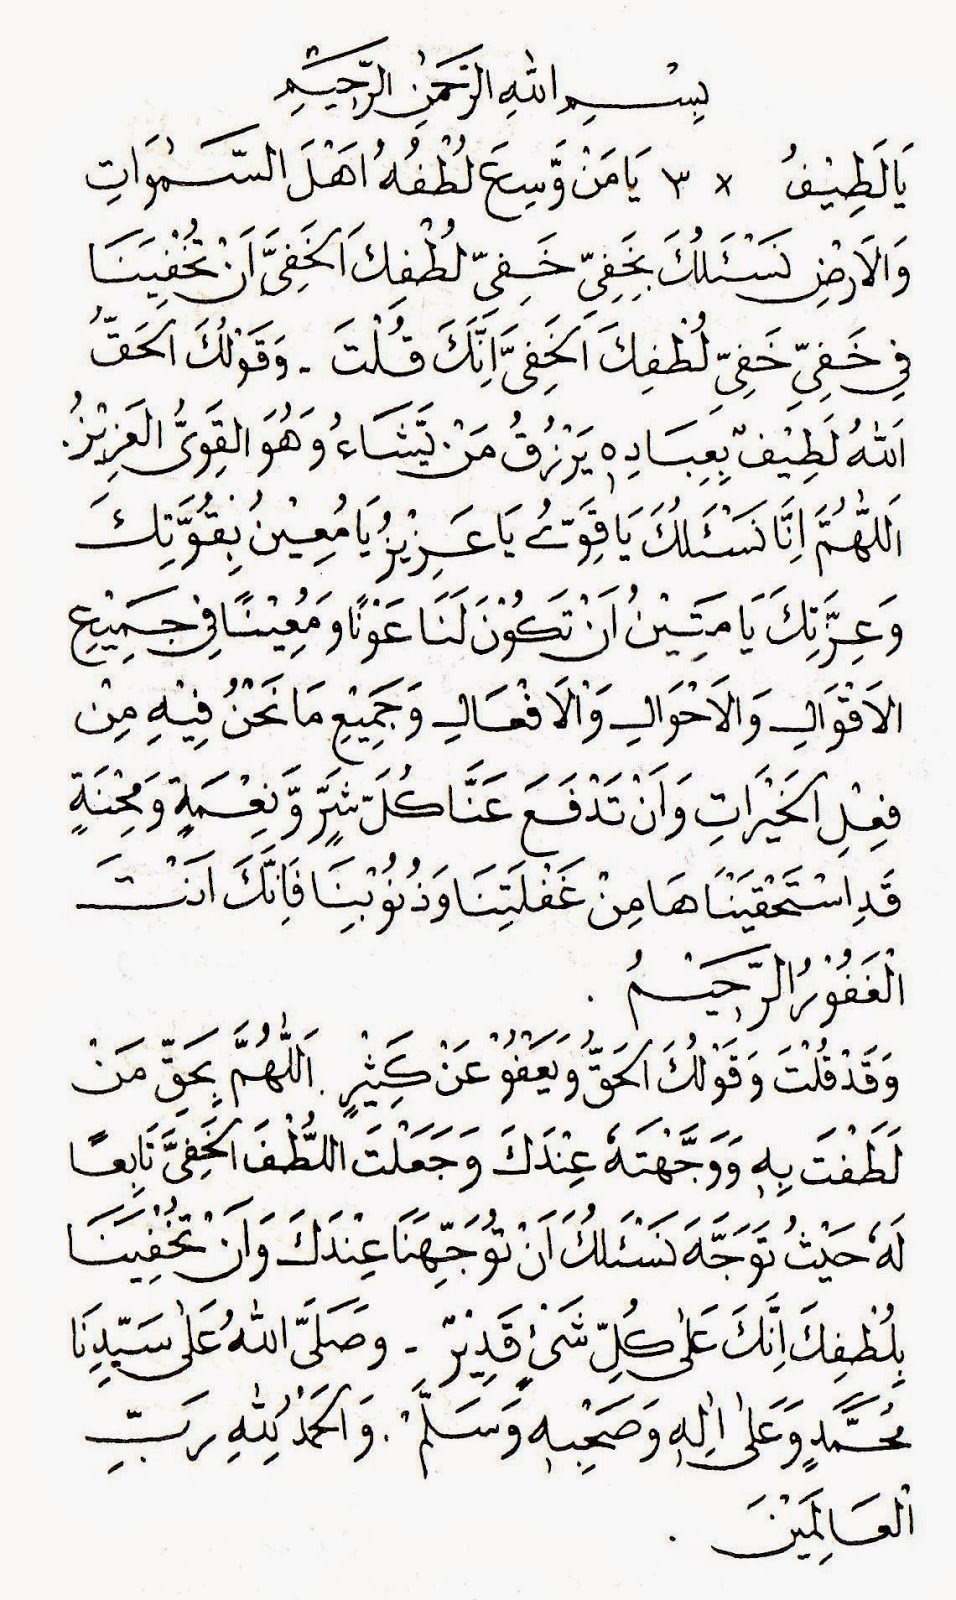 بِسْمِ اللهِ الرَّحْمٰنِ الرَّحِيْمِ
يَالَطِيْفُ × ٣ يَامَنْ وَّسِعَ لُطْفُهُ اَهْلَ السَّمٰوَاتِ
وَالْاَرْضِ نَسْئَلُكَ بِخَفِيِّ خَفِيِّ لُطْفِكَ الْخَفِيِّ اَنْ تُخْفِيَنَا
فِي خَفِيِّ خَفِيِّ لُطْفِكَ الْخَفِيِّ اِنَّكَ قُلْتَ - وَقَوْلُكَ الْحَقُّ
اَللهُ لَطِيْفٌ بِعِبَادِهٖ يَرْزُقُ مَنْ يَّشَاءُ وَهُوَ الْقَوِىُّ الْعَزِيْزُ.
اَللّٰهُمَّ اِنَّا نَسْئَلُكَ يَا قَوِيُّ يَا عَزِيْزُ يَا مُعِيْنُ بِقُوَّتِكَ
وَعِزَّتِكَ يَا مَتِيْنُ اَنْ تَكُوْنَ لَنَا عَوْنًا وَمُعِيْنًا فِي جَمِيْعِ
الْاَقْوَالِ وَالْاَحْوَالِ وَالْاَفْعَالِ وَجَمِيْعِ مَا نَحْنُ فِيْهِ مِنْ
فِعْلِ الْخَيْرَاتِ وَاَنْ تَدْفَعَ عَنَّا كُلَّ شَرٍّ وَّنِعْمَةٍ وَمِحْنَةٍ
قَدِ اسْتَحْقَيْنَاهَا مِنْ غَفْلَتِنَا وَذُنُوْبِنَا فَاِنَّكَ اَنْتَ
الْغَفُوْرُ الرَّحِيْمُ .
وَقَدْ قُلْتَ وَقَوْلُكَ الْحَقُّ وَيَعْفُوْ عَنْ كَثِيْرٍ . اَللّٰهُمَّ بِحَقِّ مَنْ
لَطَفْتَ بِهٖ وَوَجَّهْتَهٗ عِنْدَكَ وَجَعَلْتَ اللُّطْفَ الْخَفِيَّ تَابِعًا
لَهٗ حَيْثُ تَوَجَّهَ نَسْئَلُكَ اَنْ تُوَجِّهَنَا عِنْدَكَ وَاَنْ تُخْفِيَنَا
بِلُطْفِكَ اِنَّكَ عَلٰى كُلِّ شَئٍ قَدِيْرٌ - وَصَلَّى اللهُ عَلٰى سَيِّدِنَا
مُحَمَّدٍ وَّعَلٰى اٰلِهٖ وَصَحْبِهٖ وَسَلَّمْ . وَالْحَمْدُ لِلّٰهِ رَبِّ
الْعَالَمِيْنَ .